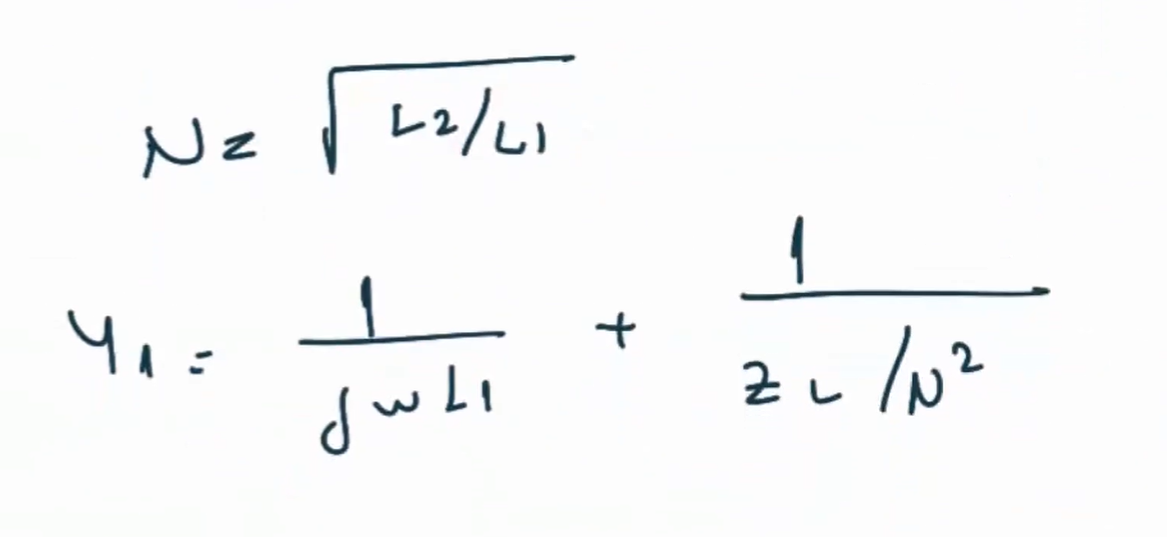 N = √(L2/L1)
Y1 = 1/(jwL1) + 1/(ZL/N²)